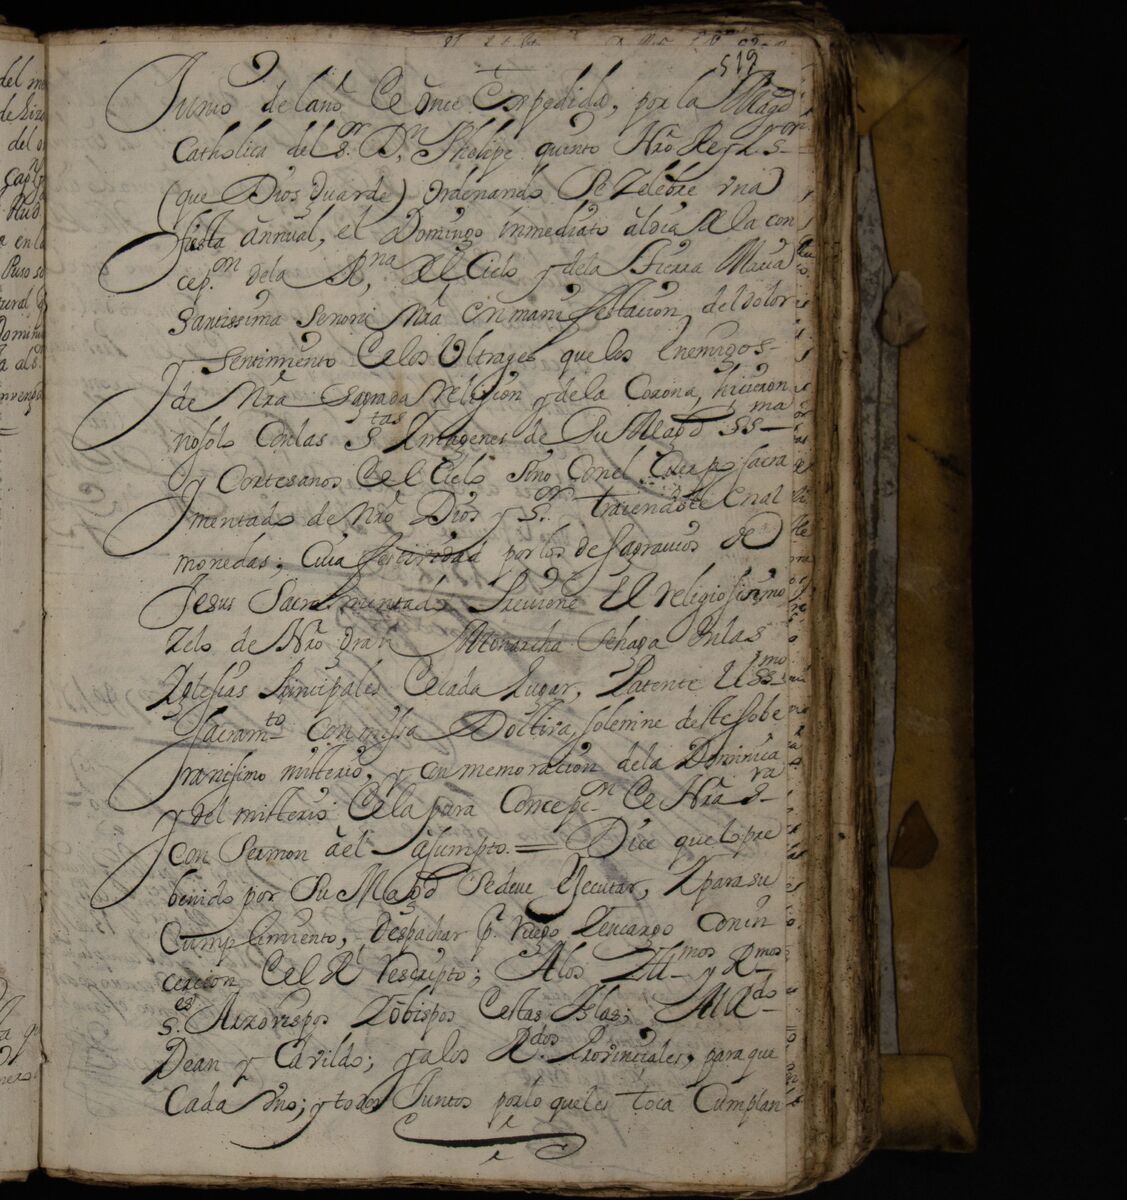 519
Junio de lano de once Expedida, por la Magd
Catholica del s.or Dn Phelipe quinto Nro Rey y S.or
(que Dios Guarde) Ordenando Se Zelebre Vna
fiesta annual, el Domingo inmediato al dia de la con
cep.on dela Rna del Cielo y dela tierra Maria
Santissima Senora Nra en manifestacion, del dolor
y sentimiento de los Vltrages que los Enemigos
de Nra Sagrada religion y de la Corona, hicieron
no solo Con las Stas Imagenes de Su Magd SSma
y Cortesanos del Cielo Sino Con el Cuerpo sacra
mentado de Nro Dios y S.or
monedas; Cuia por los desagrauios de
Jesus Sacramentado Preuiene El religiosisimo
Zelo de Nro gran Monarcha Se haga En las
Iglesias Principales de cada Lugar, Patente El SSmo
Sacramto Con missa Votiua, solemne deste sobe
ranisimo misterio, y Conmemoracion dela Dominica
y del misterio de la pura Concepon de Nra Sra
Con Sermon del asumpto. = Dice que lo pre
benido por Su Magd Se deue Ejecutar, Y para su
Cumplimiento, Despachar p. ruego Y encargo Con in
cercion del Rl rescripto; A los Illmos y Rmos
S.es Arzobispos Y obispos destas Islas; Al Rdo
Dean y Cavildo; y a los Rdos Provinciales, para que
Cada Vno; y todos Juntos por lo que les toca Cumplan